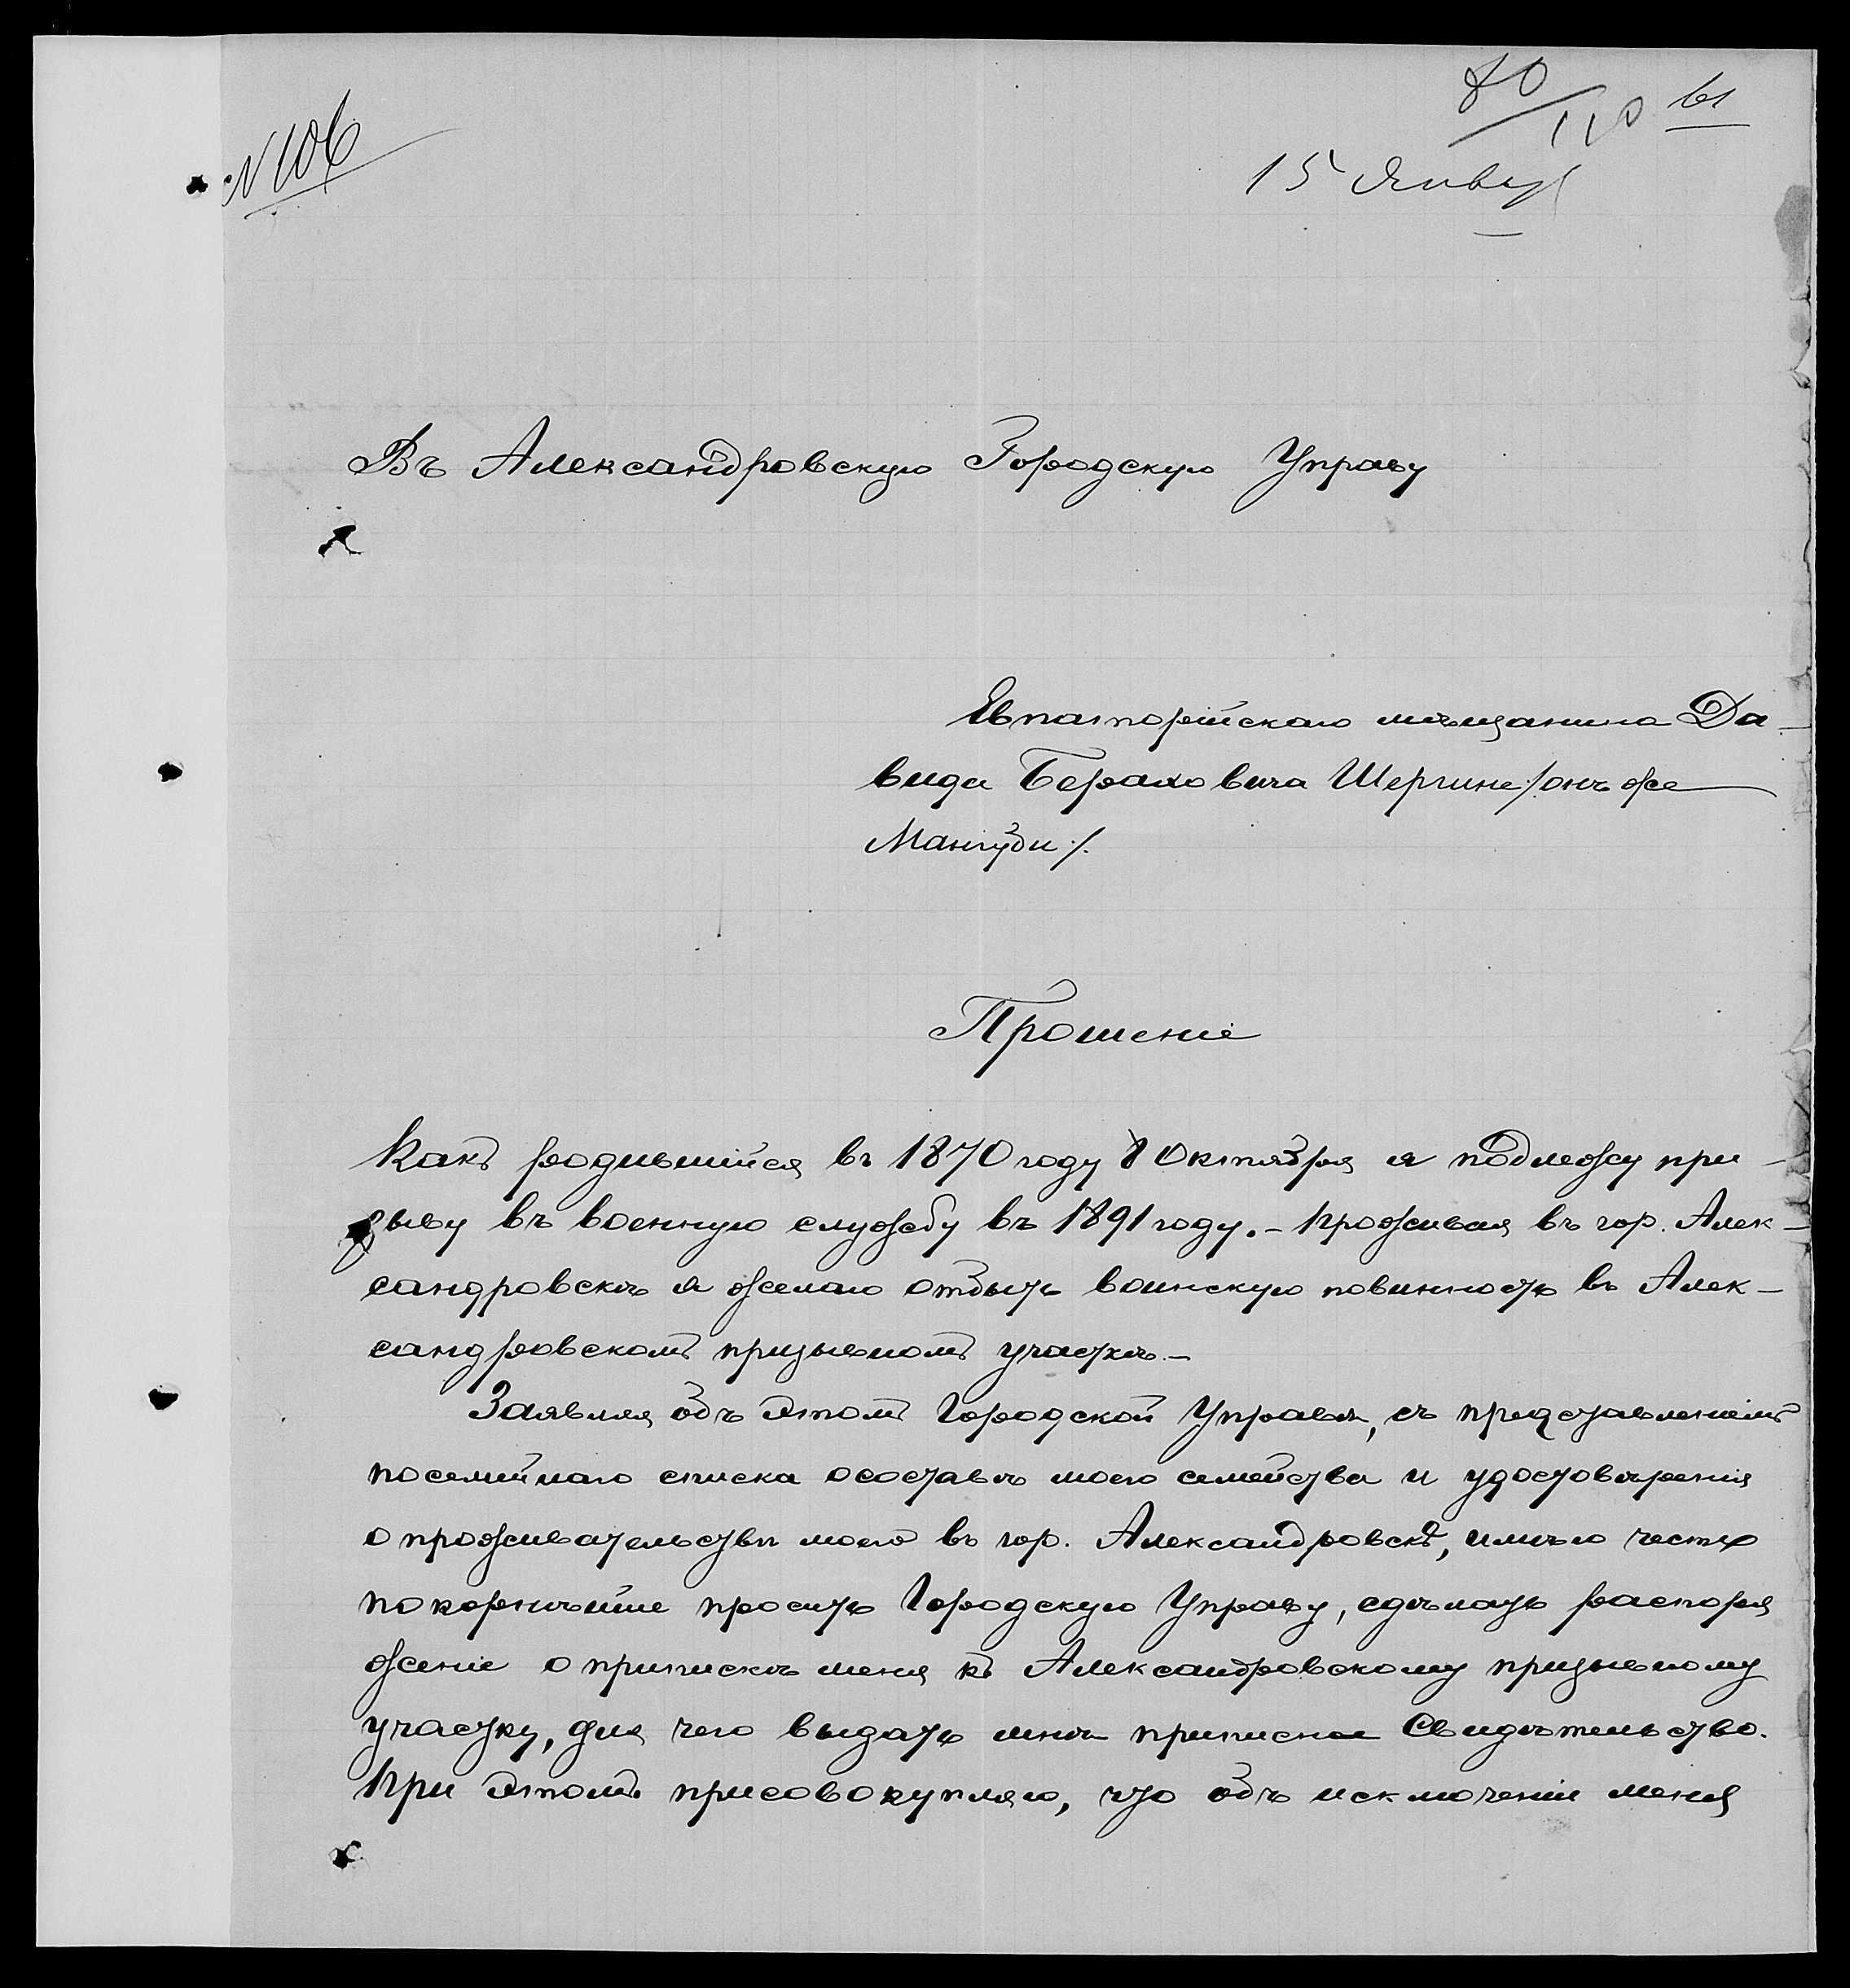 80/110 61
№ 106
15 Январ
Въ Александровскую Городскую Управу
Евпаторійскаго мѣщанина Да-
вида Бераховича Шергине /: онъ же
Мангуби :/.
Прошеніе
Какъ родившійся въ 1870 году 8 Октября я подлежу при-
зыву въ военную службу въ 1891 году. - Проживая въ гор. Алек-
сандровскѣ я желаю отбыть воинскую повинность въ Алек-
сандровскомъ призывномъ участкѣ. -
Заявляя объ этомъ Городской Управѣ, съ представленіемъ
посемейнаго списка о составѣ моего семейства и удостовѣренія
о проживательствѣ моего въ гор. Александровскѣ, имѣю честь
покорнѣйше просить Городскую Управу, сдѣлать распоря
женіе о припискѣ меня къ Александровскому призывному
участку, для чего выдать мнѣ приписное Свидѣтельство.
При этомъ присовокупляю, что объ исключеніи меня